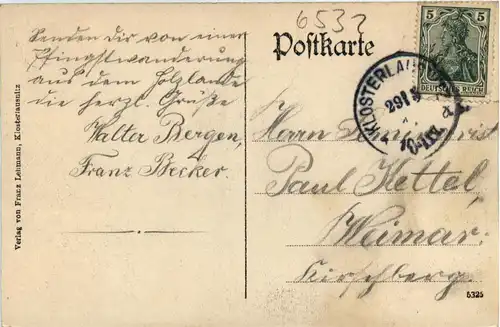 6532
Senden Dir von einer
Pfingstwanderung
aus dem Holzlande
die herzl. Grüße
Walter Bergen,
Franz Becker
Postkarte
5 5
DEUTSCHES REICH
KLOSTERLAUSNITZ
29
Herrn
Paul Kettel,
Weimar.
Kirschberg.
Verlag von Franz Lehmann, Klosterlausnitz
5325